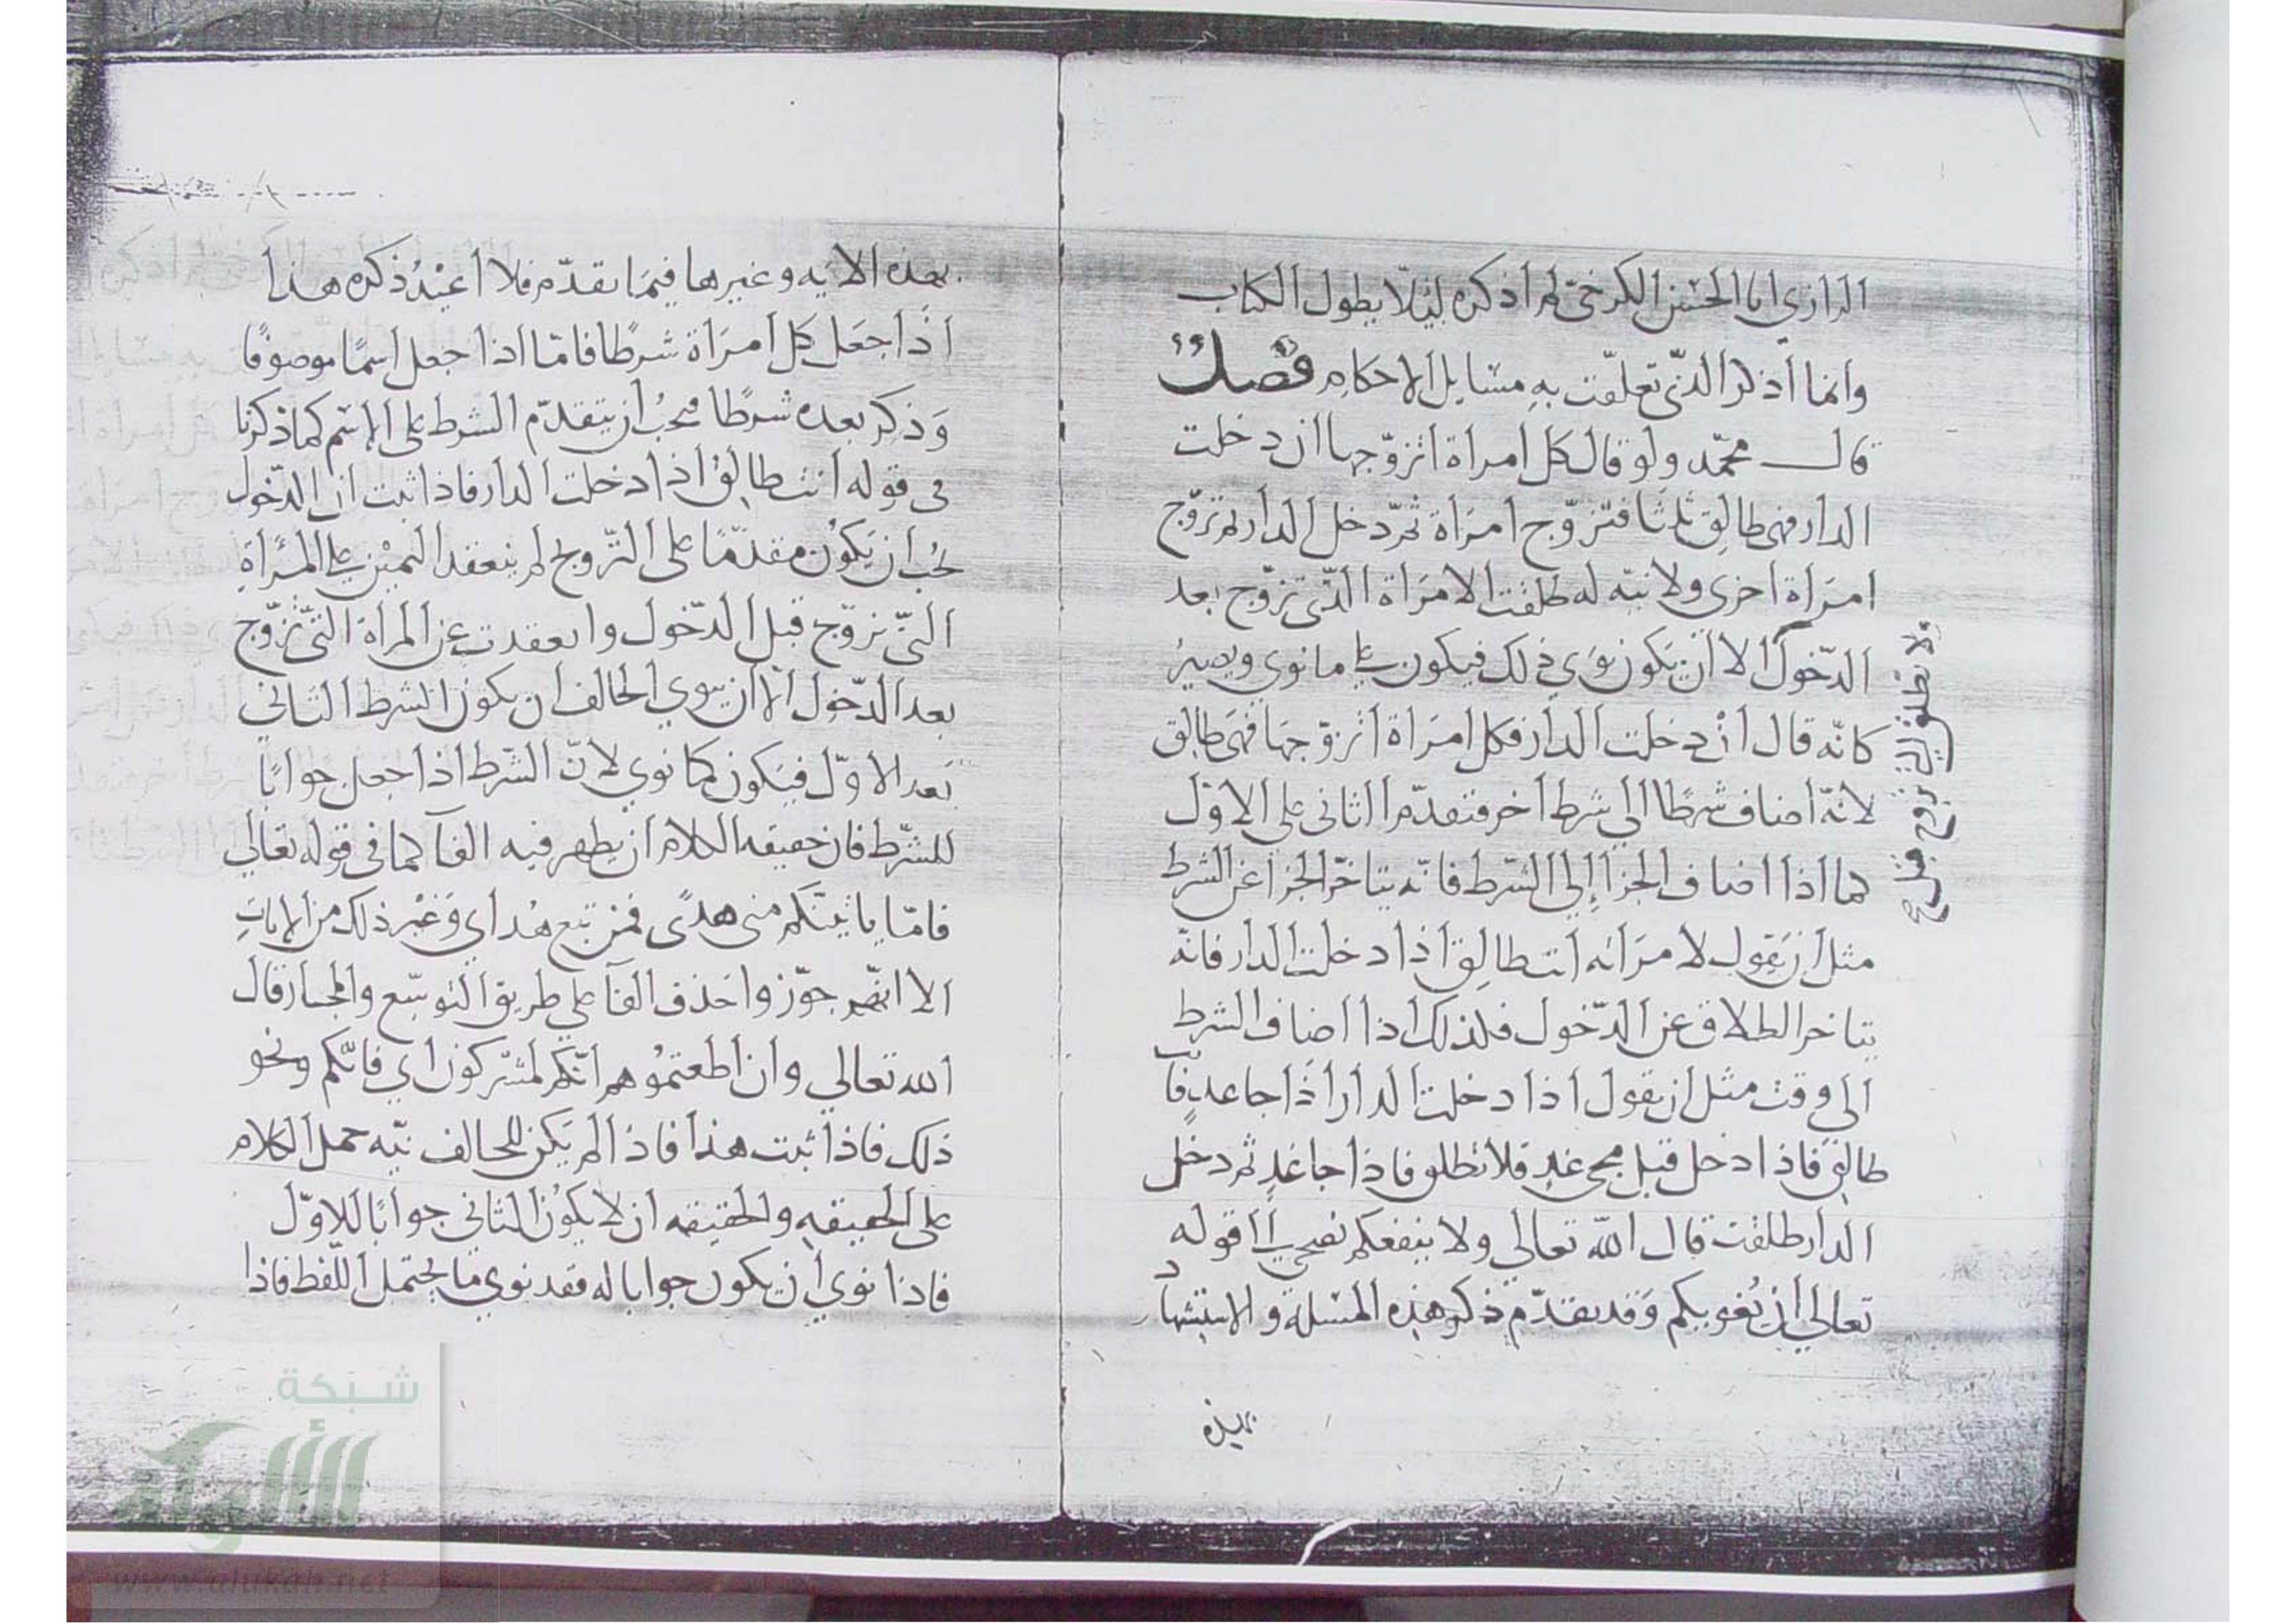 الرازي ابا الحسن الكرخي لم أذكره ليلّا يطول الكتاب
وانما أذكر الذي تعلّقت به مسايل الاحكام فصل
قال محمّد ولو قال كل امرأة اتزوّجها ان دخلت
الدار فهي طالِق ثلثا فتزوّج امرأة ثم دخل الدار ثم تزوّج
امرَأة اخرى ولا نيّه له طلقت الامرَأة الذي تزوّج بعد
الدّخول الا أن يكون نوَي ذلك فيكون علي ما نوي ويصيرُ
كانّه قال أن دخلت الدار فكل امرَأة أتزوّجها فهي طالق
لانّه اضاف شرطًا الي شرط اخر فتقدّم الثانى على الاوّل
كما اذا اضاف الجزا إلي الشرط فانّه يتاخّر الجزا عن الشرط
مثل أن يَقول لامرَأته أنت طالِق اذا دخلت الدار فانّه
يتاخر الطلاق عن الدّخول فلذلك اذا اضاف الشرط
الي وقت مثل ان يقول اذا دخلت الدار اذا جا غدٍ فانت
طالق فاذا دخل قبل مجي غدٍ فلا تطلق فاذا جا غدٍ ثم دخل
الدار طلقت قال الله تعالي ولا ينفعكم نصحي إلي قوله
تعالي أن يُغويكم وَقد تقدّم ذكر هذه المسئلة والاستشهاد
بهذه
ولا تطلق التي تزوج قبل
بهذه الايه وغيرها فيمَا تقدّم فلا أعيْدُ ذكره هذا
اذا جعَل كل امرَأة شرطًا فامّا اذا جعل اسمًا موصوفًا
وَذكر بعده شرطًا يجبُ ان يتقدّم الشرط على الاسم كما ذكرنا
في قوله أنت طالِق اذا دخلت الدار فاذا ثبت ان الدّخول
يجُب ان يَكوُن مقدّمًا على التزويج لم ينعقد اليميْن علي المرأةِ
التيّ تزوّج قبل الدّخول وانعقدت عن المرأة التيّ تزوّج
بعد الدّخول الا أن ينوي الحالف ان يكون الشرط الثاني
بَعد الاوّل فيَكون كما نوي لانّ الشرط اذا جعل جوابًا
للشّرط فان حقيقه الكلام ان يظهر فيه الفآ كما في قوله تعالي
فامّا ياتينّكم مني هدًى فمن تبع هُداي وَغيْر ذلك من الاياتِ
الا انّهم جوّزوا حَذف الفآ علي طريق التوسّع والمجاز قال
الله تعالي وان أطعتمُوهم انّكم لمشركون أي فانّكم ونحو
ذلك فاذا ثبت هذا فاذا لم يَكن للحالف نيّه حمل الكلام
على الحقيقهِ والحقيقه ان لا يكوُن الثاني جوابًا للاوّل
فاذا نوي أن يكون جوابا له فقد نوي ما يحتمل اللّفظ فاذا
شبكة
الألوكة
www.alukah.net